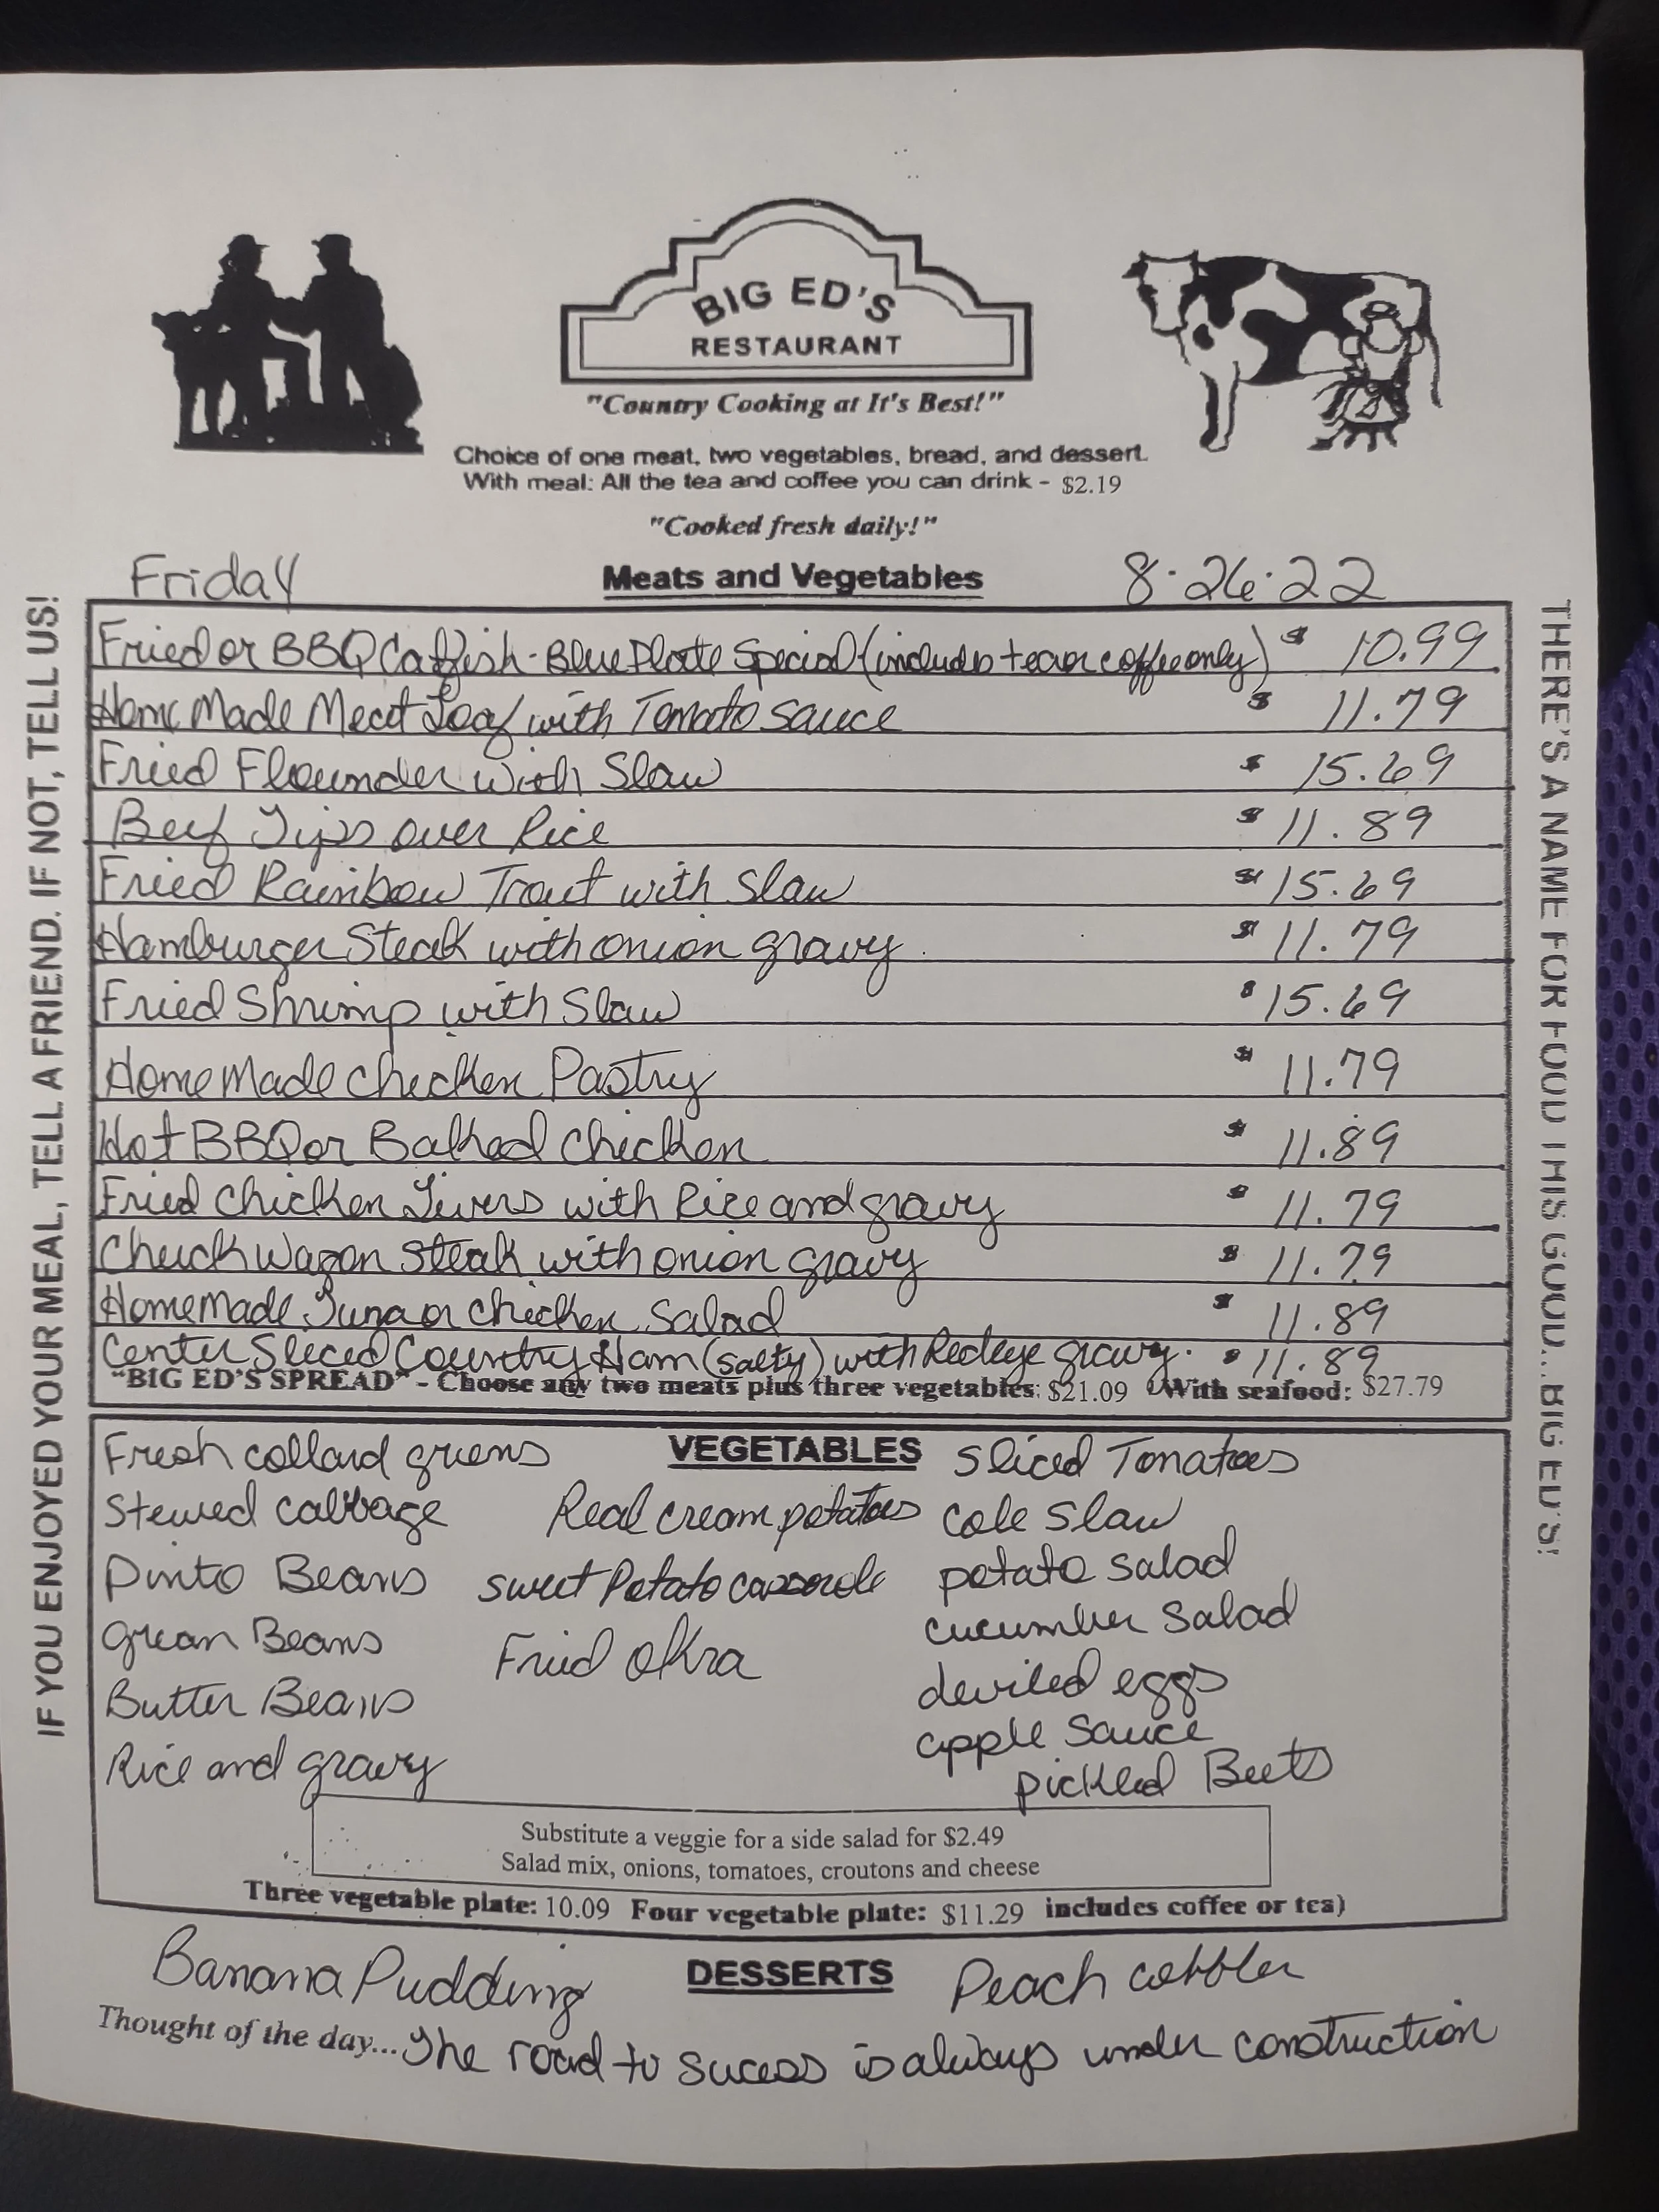 BIG ED'S
RESTAURANT
"Country Cooking at It's Best!"
Choice of one meat, two vegetables, bread, and dessert.
With meal: All the tea and coffee you can drink - $2.19
"Cooked fresh daily!"
Friday Meats and Vegetables 8·26·22
Fried or BBQ Catfish - Blue Plate Special (includes tea or coffee only) $ 10.99
Home Made Meat Loaf with Tomato sauce $ 11.79
Fried Flounder with Slaw $ 15.69
Beef Tips over Rice $ 11.89
Fried Rainbow Trout with Slaw $ 15.69
Hamburger Steak with onion gravy $ 11.79
Fried Shrimp with Slaw $ 15.69
Home Made chicken Pastry $ 11.79
Hot BBQ or Baked chicken $ 11.89
Fried chicken Livers with Rice and gravy $ 11.79
Chuck Wagon Steak with onion gravy $ 11.79
Home made Tuna or chicken Salad $ 11.89
Center Sliced Country Ham (salty) with Redeye gravy. $ 11.89
"BIG ED'S SPREAD" - Choose any two meats plus three vegetables: $21.09 With seafood: $27.79
VEGETABLES
Fresh collard greens
Stewed cabbage
Pinto Beans
green Beans
Butter Beans
Rice and gravy
Real cream potatoes
sweet Potato casserole
Fried okra
Sliced Tomatoes
cole slaw
potato salad
cucumber salad
deviled eggs
apple sauce
pickled Beets
Substitute a veggie for a side salad for $2.49
Salad mix, onions, tomatoes, croutons and cheese
Three vegetable plate: 10.09 Four vegetable plate: $11.29 includes coffee or tea)
Banana Pudding DESSERTS Peach cobbler
Thought of the day... The road to sucess is always under construction
IF YOU ENJOYED YOUR MEAL, TELL A FRIEND. IF NOT, TELL US!
THERE'S A NAME FOR FOOD THIS GOOD...BIG ED'S!